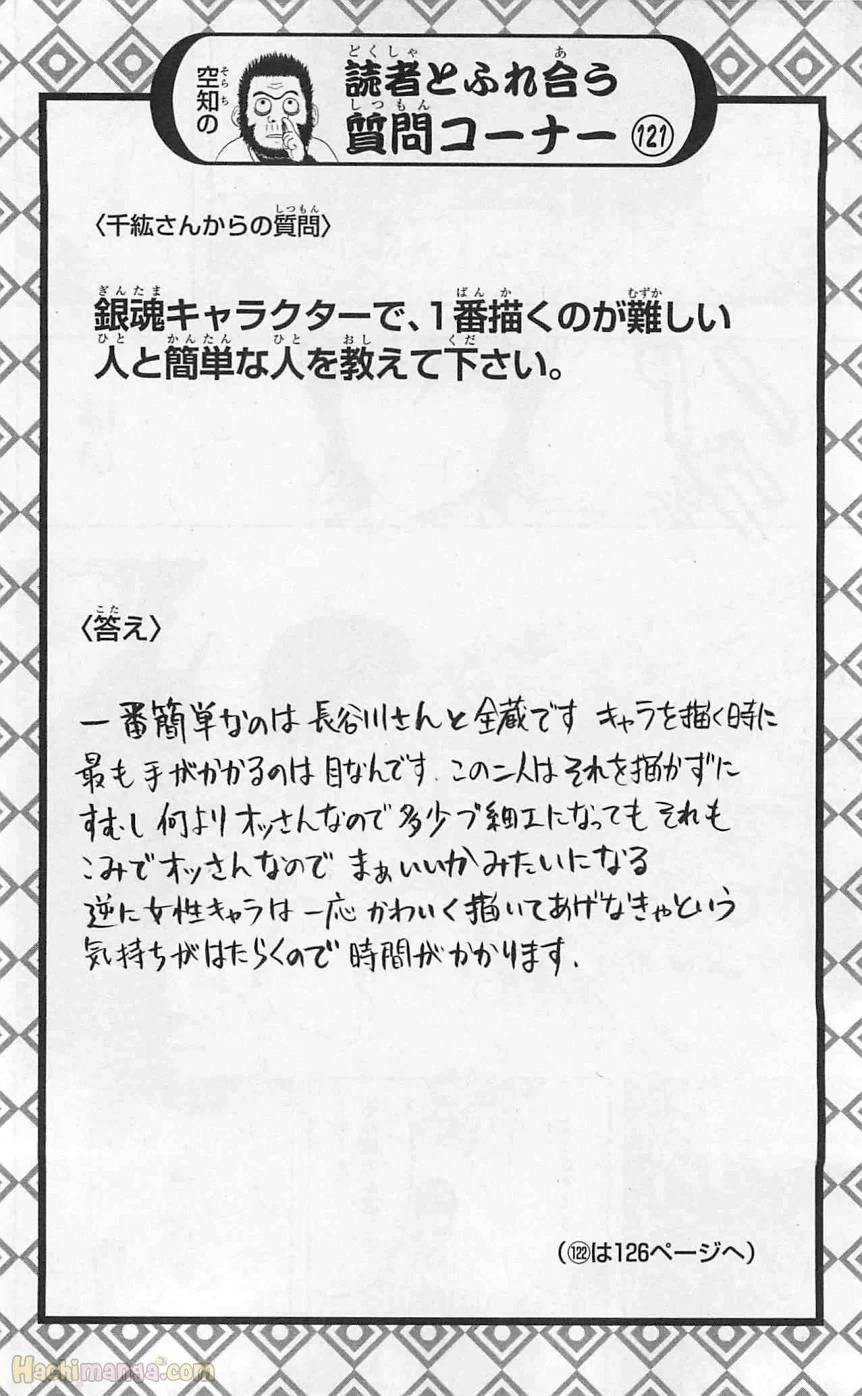 空知の
読者とふれ合う
質問コーナー121
〈千紘さんからの質問〉
銀魂キャラクターで、1番描くのが難しい
人と簡単な人を教えて下さい。
〈答え〉
一番簡単なのは長谷川さんと全蔵です キャラを描く時に
最も手がかかるのは目なんです. この二人はそれを描かずに
すむし 何よりオッさんなので多少ブ細工になってもそれも
こみでオッさんなので まぁいいか みたいになる
逆に女性キャラは一応かわいく描いてあげなきゃという
気持ちがはたらくので時間がかかります.
(122は126ページへ)
Hachimanga.com